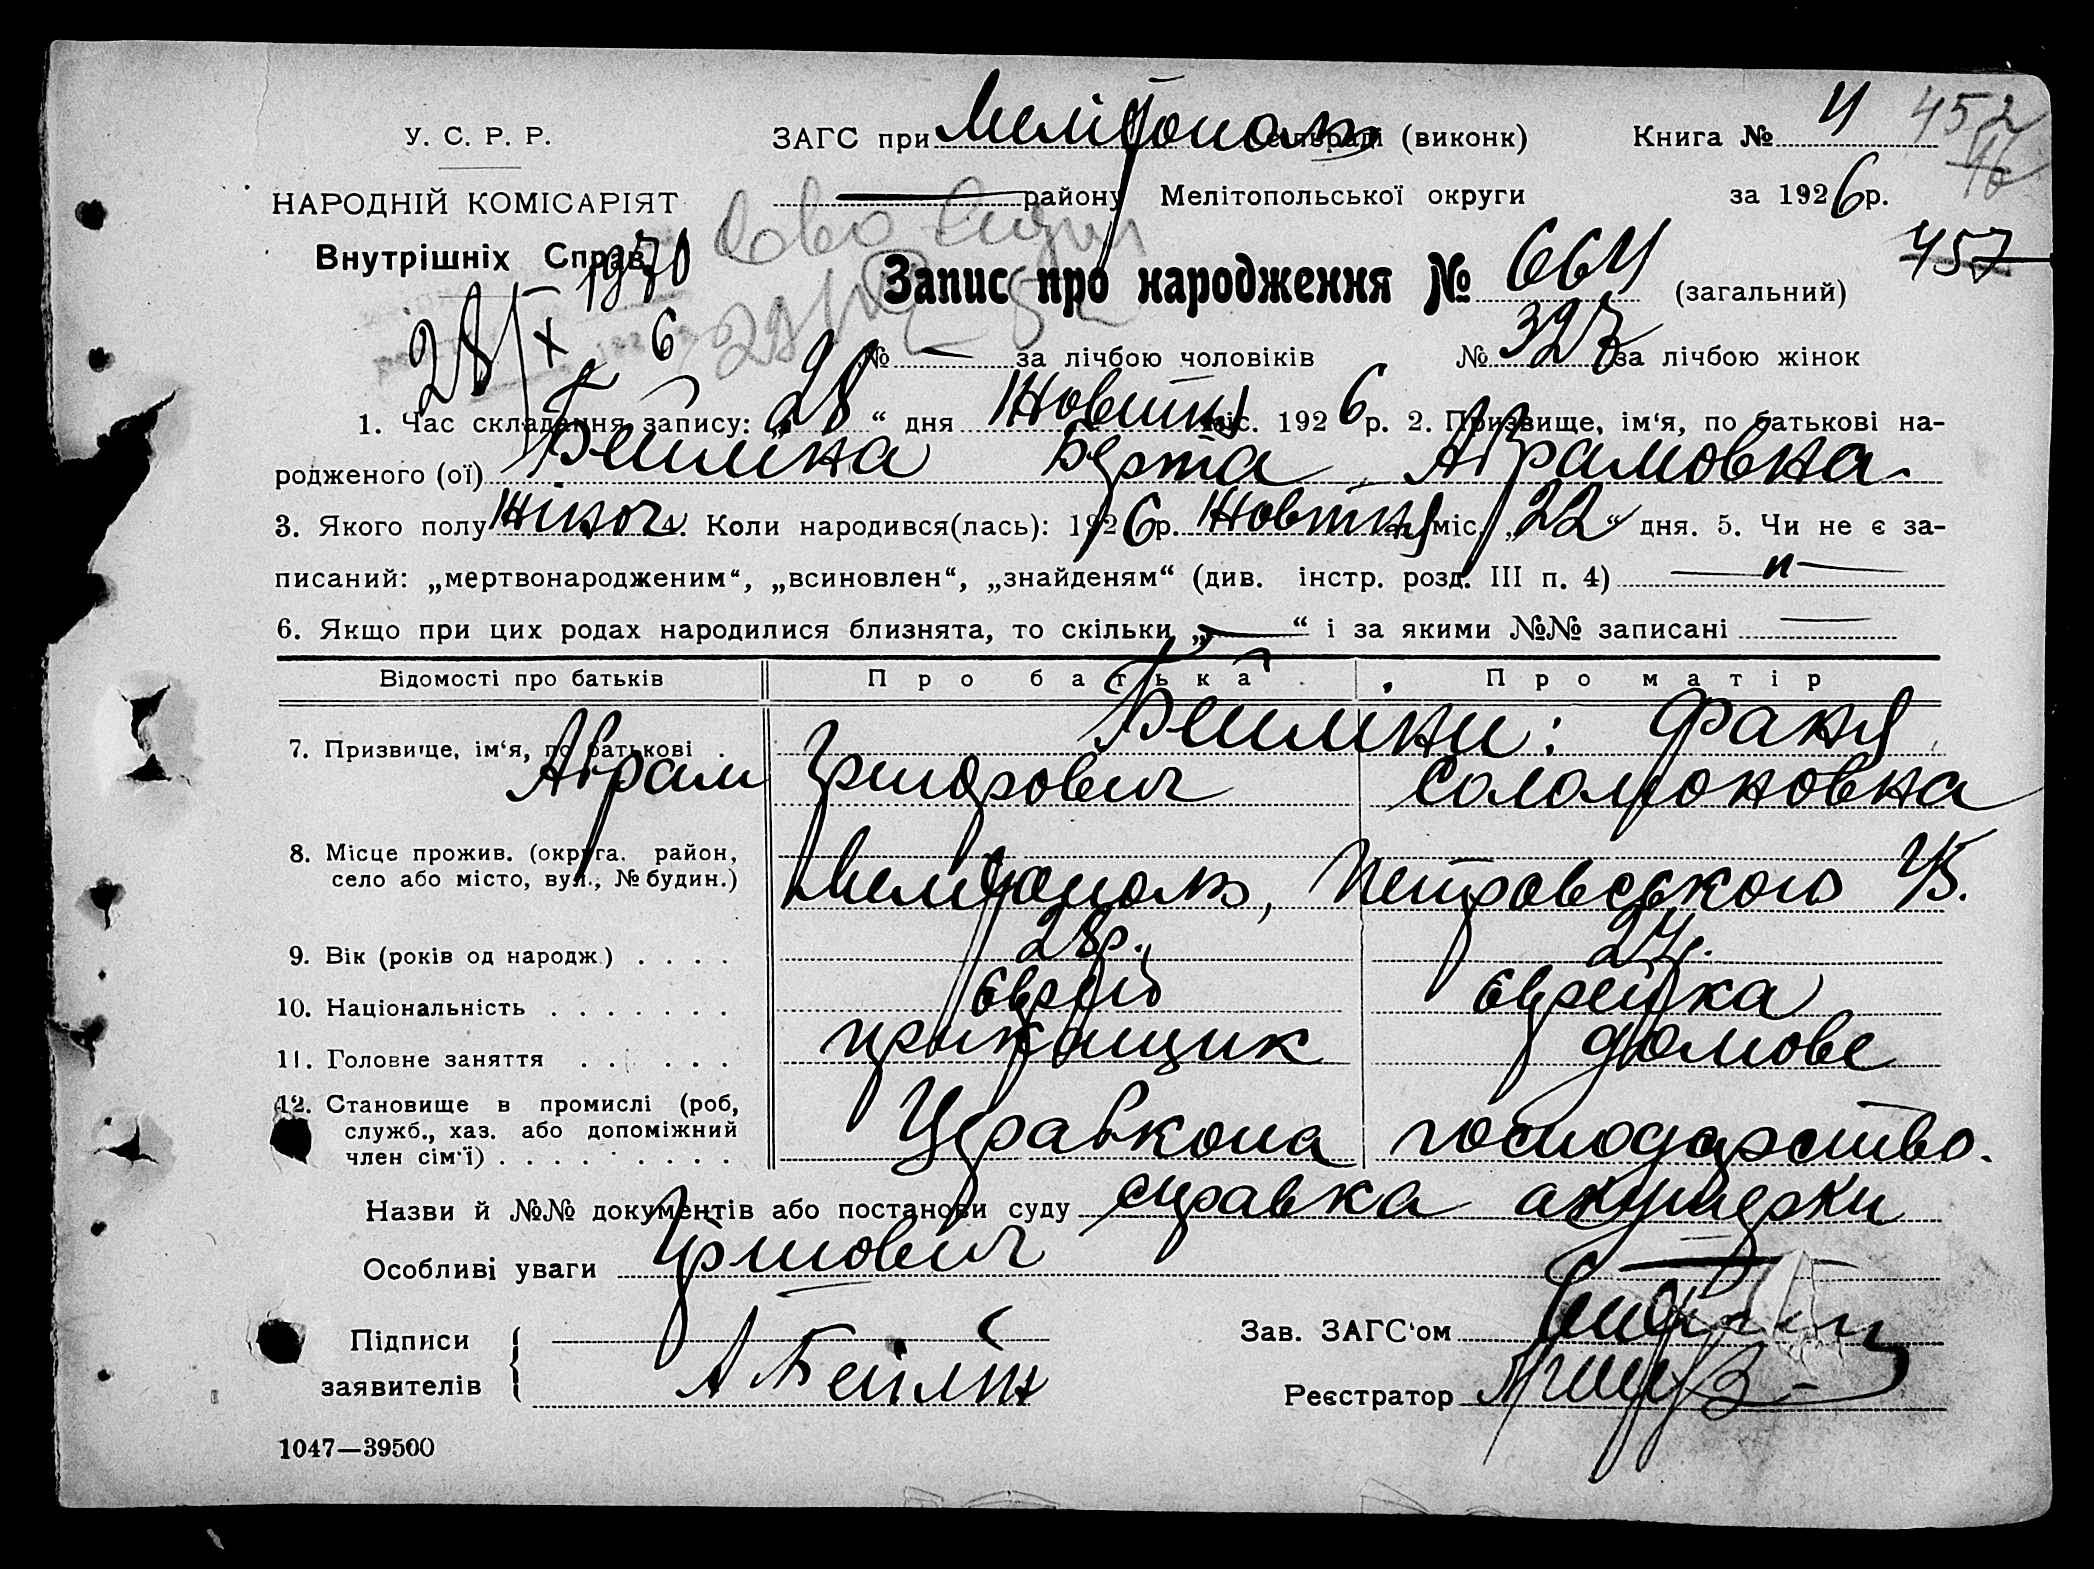 У. С. Р. Р.
ЗАГС при Мелітополь сільраді (виконк) Книга № 4 452
46
НАРОДНІЙ КОМІСАРІЯТ района Мелітопольської округи за 1926 р.
Внутрішніх Справ 1970
457
Запис про народження № 664 (загальний)
28/X 6
№ — за лічбою чоловіків № 323 за лічбою жінок
1. Час складання запису: „28“ дня Жовтня міс. 1926 р. 2. Призвище, ім‘я, по батькові на-
родженого (ої) Бейліна Берта Абрамовна
3. Якого полу жіноч. 4. Коли народився(лась): 1926 р. Жовтня міс. „22“ дня. 5. Чи не є за-
писаний: „мертвонародженим“, „всиновлен“, „знайденям“ (див. інстр. розд. III п. 4) — н —
6. Якщо при цих родах народилися близнята, то скільки „—“ і за якими №№ записані —
Відомості про батьків Про батька Про матір
7. Призвище, ім‘я, по батькові Бейліни: Фаня
Абрам Григорович Соломоновна
8. Місце прожив. (округа, район,
село або місто, вул., № будин.) Мелітополь, Петровського 45.
9. Вік (років од народж.) 28 р. 24 р.
10. Національність єврей єврейка
11. Головне заняття прикащик домове
12. Становище в промислі (роб,
служб., хаз. або допоміжний
член сім‘ї) Церабкопа господарство.
Назви й №№ документів або постанови суду справка акушерки
Особливі уваги Гршович
Підписи Зав. ЗАГС‘ом
заявителів А Бейлін Реєстратор
1047—39500